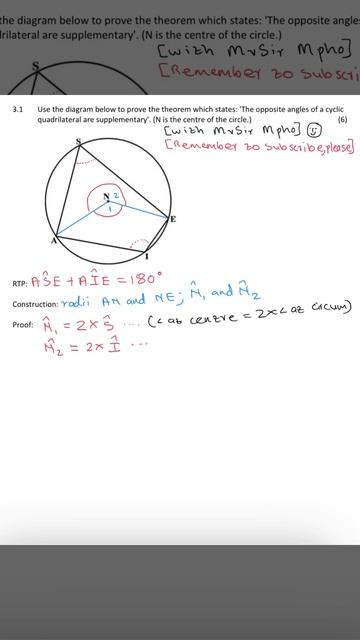 the diagram below to prove the theorem which states: 'The opposite angles
drilateral are supplementary'. (N is the centre of the circle.)
[with MrSir Mpho]
[Remember to subscri
S
3.1 Use the diagram below to prove the theorem which states: 'The opposite angles of a cyclic
quadrilateral are supplementary'. (N is the centre of the circle.) (6)
[with MrSir Mpho]
[Remember to subscribe, please]
S
N 2
1
E
A
I
RTP: AŜE + AÎE = 180°
Construction: radii AN and NE; N̂₁ and N̂₂
Proof: N̂₁ = 2 x Ŝ .... (< at centre = 2x< at circum)
N̂₂ = 2 x Î ...